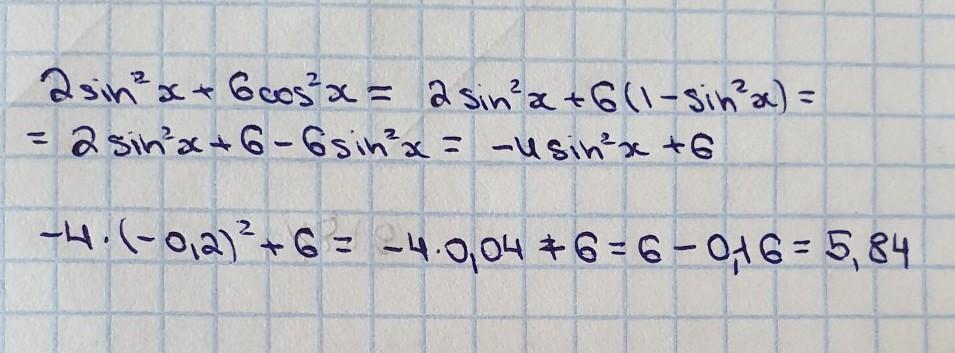 2sin²x + 6cos²x = 2sin²x + 6(1 - sin²x) =
= 2sin²x + 6 - 6sin²x = -4sin²x + 6
-4·(-0,2)² + 6 = -4·0,04 + 6 = 6 - 0,16 = 5,84